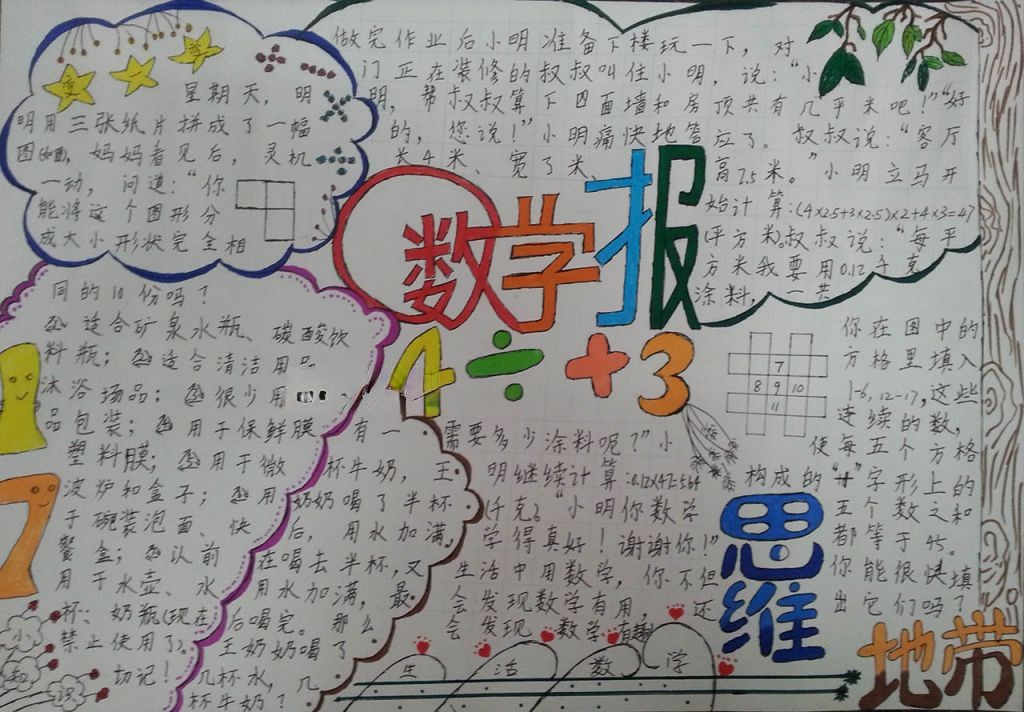 变一变
星期天，明
明用三张纸片拼成了一幅
图(如图)，妈妈看见后，灵机
一动，问道：“你
能将这个图形分
成大小形状完全相
同的10份吗？
适合矿泉水瓶、碳酸饮
料瓶；适合清洁用品
沐浴场品；很少用
品包装；用于保鲜膜
塑料膜；用于微
波炉和盒子；用
于碗装泡面、快
餐盒；以前
用于水壶、水
杯、奶瓶(现在
禁止使用了)。
切记！
小知识
做完作业后小明准备下楼玩一下，对
门正在装修的叔叔叫住小明，说：“小
明，帮叔叔算下四面墙和房顶共有几平米吧！”“好
的，您说！”小明痛快地答应了。叔叔说：“客厅
长4米、宽了米、高2.5米。”小明立马开
始计算：(4×2.5+3×2.5)×2+4×3=47
(平方米)。叔叔说：“每平
方米我要用0.12千克
涂料，一共
需要多少涂料呢？”小
明继续计算：0.12×47=5.64
(千克)。“小明你数学
学得真好！谢谢你！”
生活中用数学，你不但
会发现数学有用，还
会发现数学有趣！
数学报
1÷+3
7
有一杯牛奶，王
奶奶喝了半杯
后，用水加满，
在喝去半杯，又
用水加满，最
后喝完。那么
王奶奶喝了
几杯水，几
杯牛奶？
生活数学
7
8 9 10
11
你在图中的
方格里填入
1-6，12-17，这些
连续的数，
使每五个方格
构成的“十”字形上的
五个数之和
都等于45。
你能很快填
出它们吗？
思维地带